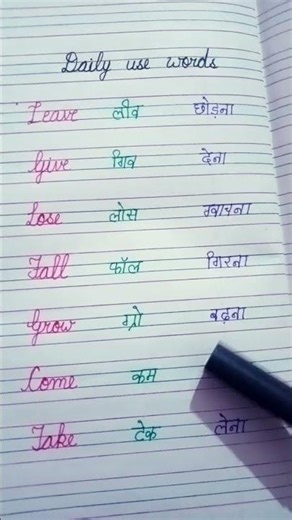 Daily use words
Leave लीव छोड़ना
Give गिव देना
Lose लोस
Fall फॉल गिरना
Grow ग्रो बढ़ना
Come कम
Take टेक लेना